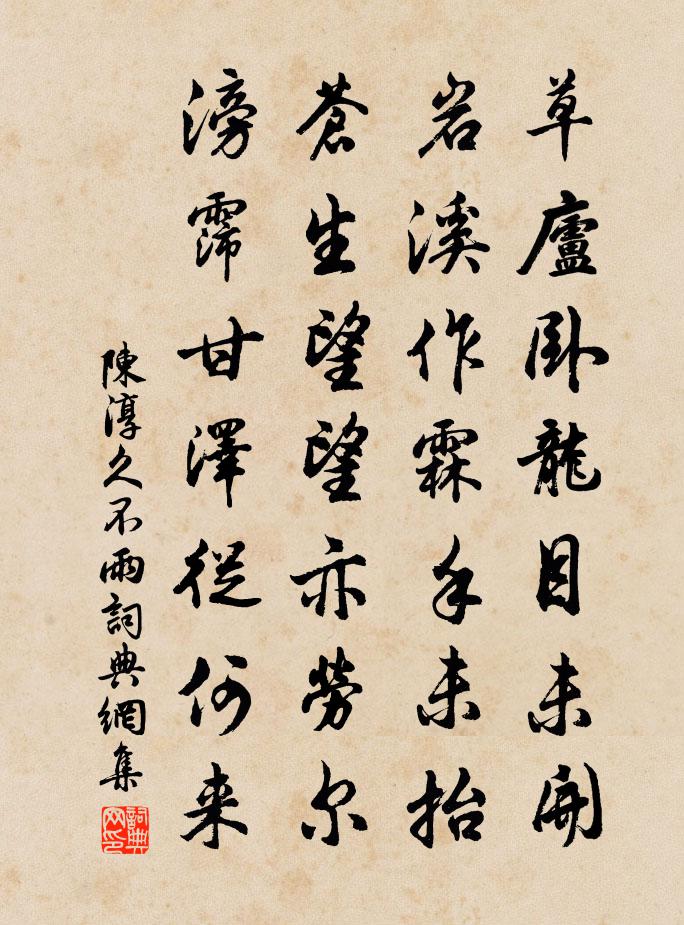 草廬臥龍目未開
岩溪作霖手未抬
蒼生望望亦勞尔
滂霈甘澤從何来
陳淳久不雨詞典網集
詞典网印